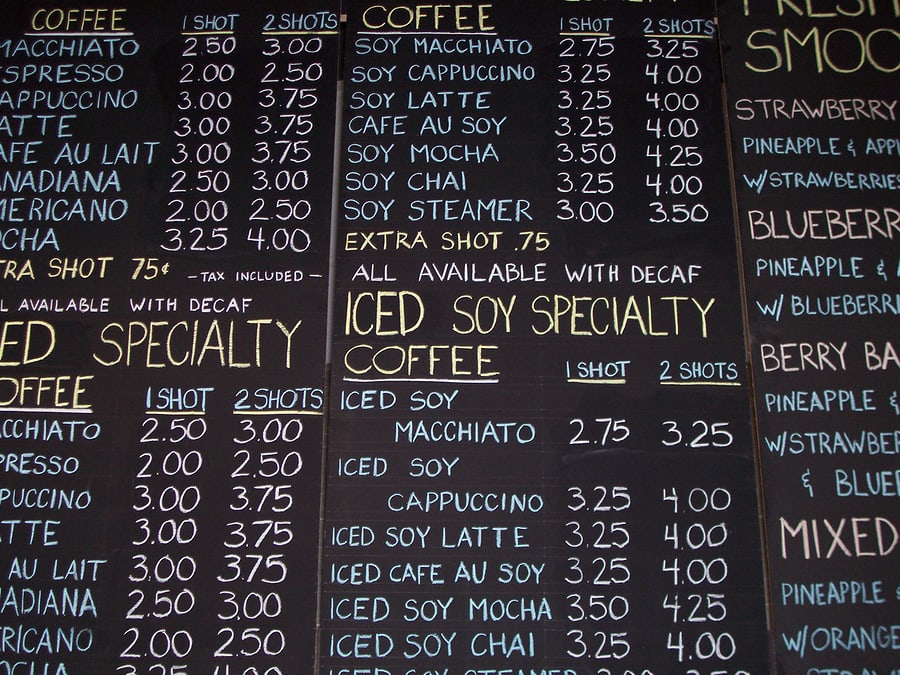 COFFEE 1 SHOT 2 SHOTS
MACCHIATO 2.50 3.00
SPRESSO 2.00 2.50
APPUCCINO 3.00 3.75
ATTE 3.00 3.75
AFE AU LAIT 3.00 3.75
NADIANA 2.50 3.00
MERICANO 2.00 2.50
OCHA 3.25 4.00
TRA SHOT 75¢ -TAX INCLUDED-
L AVAILABLE WITH DECAF
ED SPECIALTY
OFFEE 1 SHOT 2 SHOTS
CCHIATO 2.50 3.00
PRESSO 2.00 2.50
PUCCINO 3.00 3.75
TTE 3.00 3.75
AU LAIT 3.00 3.75
NADIANA 2.50 3.00
ERICANO 2.00 2.50
OCHA 3.25 4.00
COFFEE 1 SHOT 2 SHOTS
SOY MACCHIATO 2.75 3.25
SOY CAPPUCCINO 3.25 4.00
SOY LATTE 3.25 4.00
CAFE AU SOY 3.25 4.00
SOY MOCHA 3.50 4.25
SOY CHAI 3.25 4.00
SOY STEAMER 3.00 3.50
EXTRA SHOT .75
ALL AVAILABLE WITH DECAF
ICED SOY SPECIALTY
COFFEE 1 SHOT 2 SHOTS
ICED SOY
MACCHIATO 2.75 3.25
ICED SOY
CAPPUCCINO 3.25 4.00
ICED SOY LATTE 3.25 4.00
ICED CAFE AU SOY 3.25 4.00
ICED SOY MOCHA 3.50 4.25
ICED SOY CHAI 3.25 4.00
ICED SOY STEAMER
FRESH
SMOO
STRAWBERRY
PINEAPPLE & APP
W/STRAWBERRIES
BLUEBERR
PINEAPPLE &
W/ BLUEBERRI
BERRY BA
PINEAPPLE &
W/STRAWBER
& BLUE
MIXED
PINEAPPLE &
W/ORANGE
STRAW